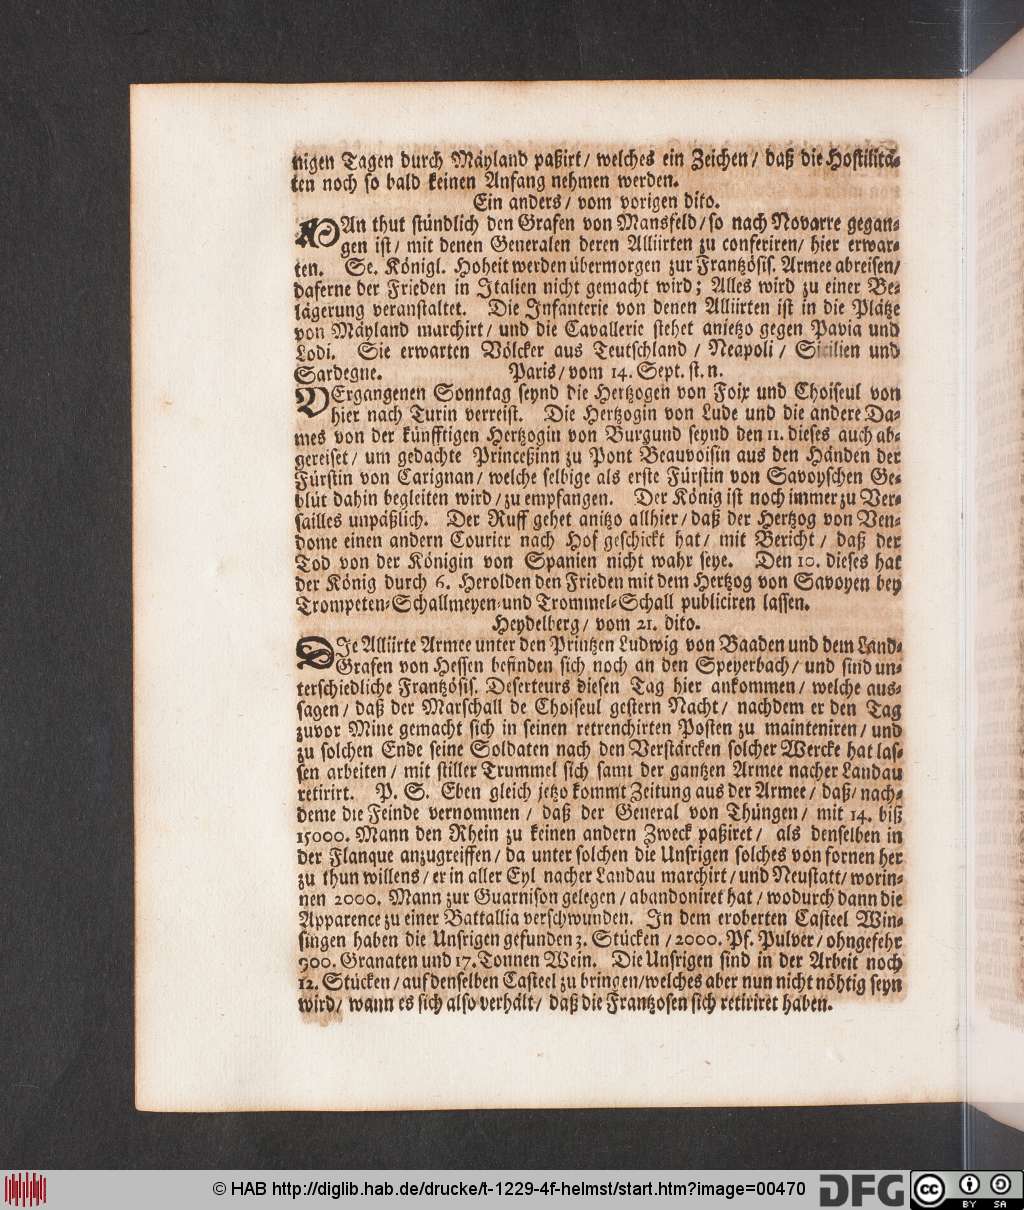 nigen Tagen durch Mäyland paßirt/ welches ein Zeichen/ daß die Hostilitä-
ten noch so bald keinen Anfang nehmen werden.
Ein anders/ vom vorigen dito.
MAn thut stündlich den Grafen von Mansfeld/ so nach Novarre gegan-
gen ist/ mit denen Generalen deren Alliirten zu conferiren/ hier erwar-
ten. Se. Königl. Hoheit werden übermorgen zur Frantzösis. Armee abreisen/
daferne der Frieden in Italien nicht gemacht wird; Alles wird zu einer Be-
lägerung veranstaltet. Die Infanterie von denen Alliirten ist in die Plätze
von Mäyland marchirt/ und die Cavallerie stehet anietzo gegen Pavia und
Lodi. Sie erwarten Völcker aus Teutschland/ Neapoli/ Sicilien und
Sardegne. Paris/ vom 14. Sept. st. n.
VErgangenen Sonntag seynd die Hertzogen von Foix und Choiseul von
hier nach Turin verreist. Die Hertzogin von Lude und die andere Da-
mes von der künfftigen Hertzogin von Burgund seynd den 11. dieses auch ab-
gereiset/ um gedachte Princeßinn zu Pont Beauvoisin aus den Händen der
Fürstin von Carignan/ welche selbige als erste Fürstin von Savoyschen Ge-
blüt dahin begleiten wird/ zu empfangen. Der König ist noch immer zu Ver-
sailles unpäßlich. Der Ruff gehet anitzo allhier/ daß der Hertzog von Ven-
dome einen andern Courier nach Hof geschickt hat/ mit Bericht/ daß der
Tod von der Königin von Spanien nicht wahr seye. Den 10. dieses hat
der König durch 6. Herolden den Frieden mit dem Hertzog von Savoyen bey
Trompeten-Schallmeyen-und Trommel-Schall publiciren lassen.
Heydelberg/ vom 21. dito.
DIe Alliirte Armee unter den Printzen Ludwig von Baaden und dem Land-
Grafen von Hessen befinden sich noch an den Speyerbach/ und sind un-
terschiedliche Frantzösis. Deserteurs diesen Tag hier ankommen/ welche aus-
sagen/ daß der Marschall de Choiseul gestern Nacht/ nachdem er den Tag
zuvor Mine gemacht sich in seinen retrenchirten Posten zu mainteniren/ und
zu solchen Ende seine Soldaten nach den Verstärcken solcher Wercke hat las-
sen arbeiten/ mit stiller Trummel sich samt der gantzen Armee nacher Landau
retirirt. P. S. Eben gleich jetzo kommt Zeitung aus der Armee/ daß/ nach-
deme die Feinde vernommen/ daß der General von Thüngen/ mit 14. biß
15000. Mann den Rhein zu keinen andern Zweck paßiret/ als denselben in
der Flanque anzugreiffen/ da unter solchen die Unsrigen solches von fornen her
zu thun willens/ er in aller Eyl nacher Landau marchirt/ und Neustatt/ worin-
nen 2000. Mann zur Guarnison gelegen/ abandoniret hat/ wodurch dann die
Apparence zu einer Battallia verschwunden. In dem eroberten Casteel Win-
singen haben die Unsrigen gefunden 3. Stücken/ 2000. Pf. Pulver/ ohngefehr
900. Granaten und 17. Tonnen Wein. Die Unsrigen sind in der Arbeit noch
12. Stücken/ auf denselben Casteel zu bringen/ welches aber nun nicht nöhtig seyn
wird/ wann es sich also verhält/ daß die Frantzosen sich retiriret haben.
© HAB http://diglib.hab.de/drucke/t-1229-4f-helmst/start.htm?image=00470
DFG
cc BY SA